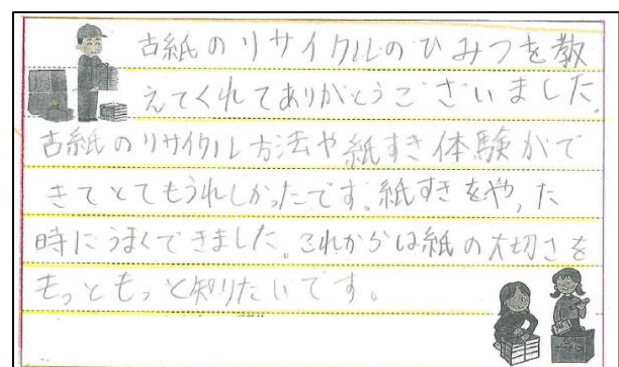 古紙のリサイクルのひみつを教
えてくれてありがとうございました。
古紙のリサイクル方法や紙すき体験がで
きてとてもうれしかったです。紙すきをやった
時にうまくできました。これからは紙の大切さを
もっともっと知りたいです。